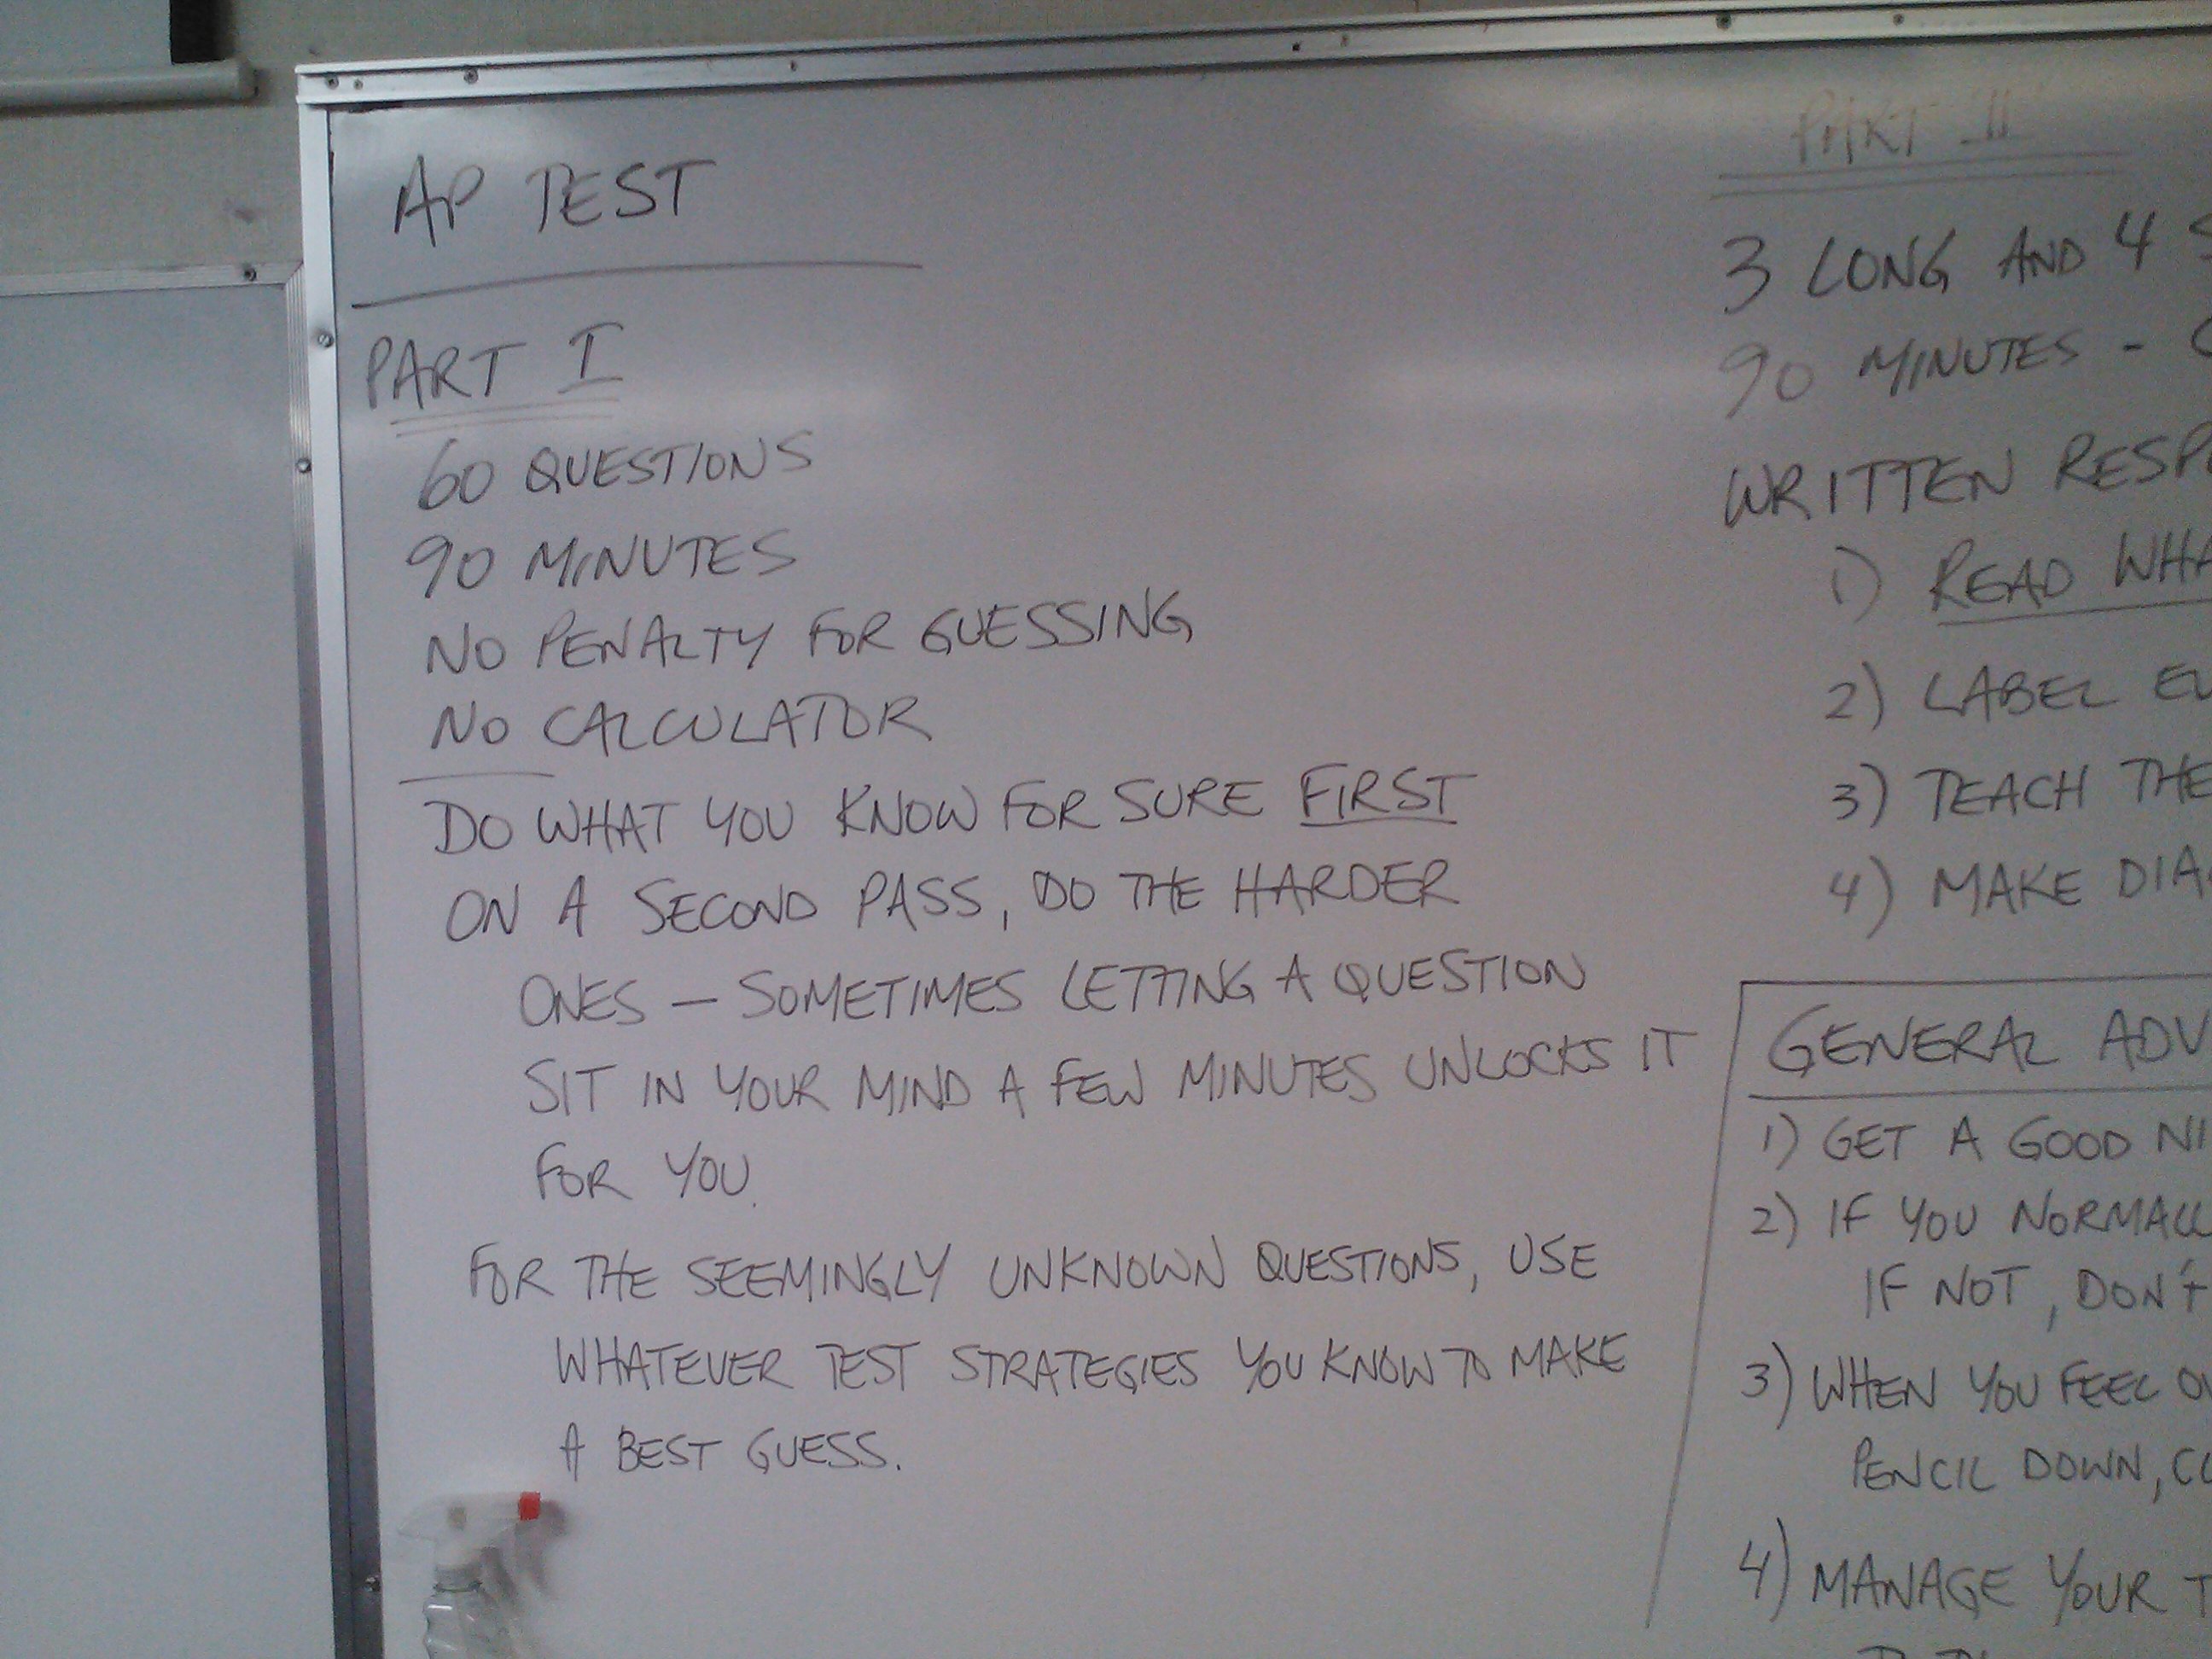 AP TEST
PART I
60 QUESTIONS
90 MINUTES
NO PENALTY FOR GUESSING
NO CALCULATOR
DO WHAT YOU KNOW FOR SURE FIRST
ON A SECOND PASS, DO THE HARDER
ONES — SOMETIMES LETTING A QUESTION
SIT IN YOUR MIND A FEW MINUTES UNLOCKS IT
FOR YOU.
FOR THE SEEMINGLY UNKNOWN QUESTIONS, USE
WHATEVER TEST STRATEGIES YOU KNOW TO MAKE
A BEST GUESS.
PART II
3 LONG AND 4 S
90 MINUTES -
WRITTEN RESP
1) READ WHA
2) LABEL EV
3) TEACH THE
4) MAKE DIA
GENERAL ADV
1) GET A GOOD NI
2) IF YOU NORMALL
IF NOT, DON'T
3) WHEN YOU FEEL OV
PENCIL DOWN, CL
4) MANAGE YOUR T